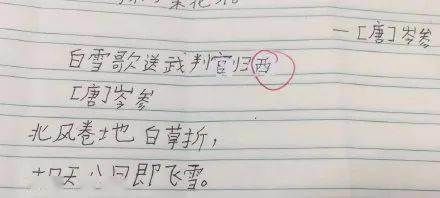 —[唐]岑参
白雪歌送武判官归西
[唐]岑参
北风卷地白草折，
十天八月即飞雪。